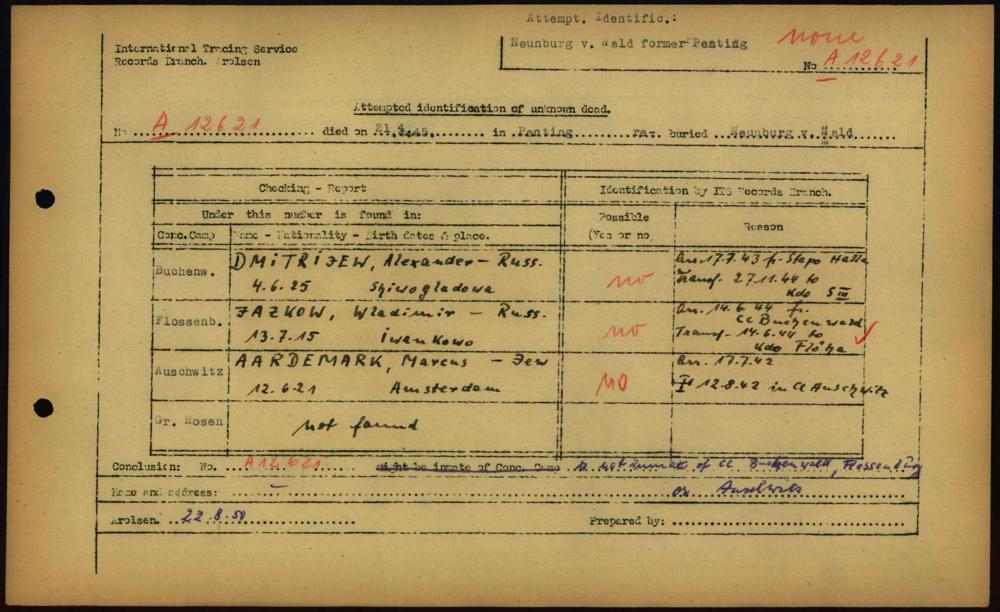 Attempt. Identific.:
Neunburg v. Wald former Penting
none
No A 12621
International Tracing Service
Records Branch. Arolsen
Attempted identification of unknown dead.
No A 12621 died on 21.4.45. in Penting bur. buried Neunburg v. Wald
Checking - Report
Identification by ITS Records Branch.
Under this number is found in:
Possible
(Yes or no)
Reason
Conc.Camp
Name - Nationality - Birth dates & place.
Buchenw.
DMITRIJEW, Alexander - Russ.
4.6.25 Shiwogladowa
no
arr. 17.7.43 fr. Stapo Halle
Transf. 27.11.44 to
Kdo S III
Flossenb.
JAZKOW, Wladimir - Russ.
13.7.15 Iwankowo
no
arr. 14.6.44 fr.
CC Buchenwald
Transf. 14.6.44 to
Kdo Flöha
Auschwitz
AARDEMARK, Marcus - Jew
12.6.21 Amsterdam
no
arr. 17.7.42
12.8.42 in CC Auschwitz
Gr. Rosen
not found
Conclusion: No. A 12621 might be inmate of Conc. Camp is not inmate of CC Buchenwald, Flossenbürg
Name and address: - or Auschwitz
Arolsen. 22.8.50 Prepared by: